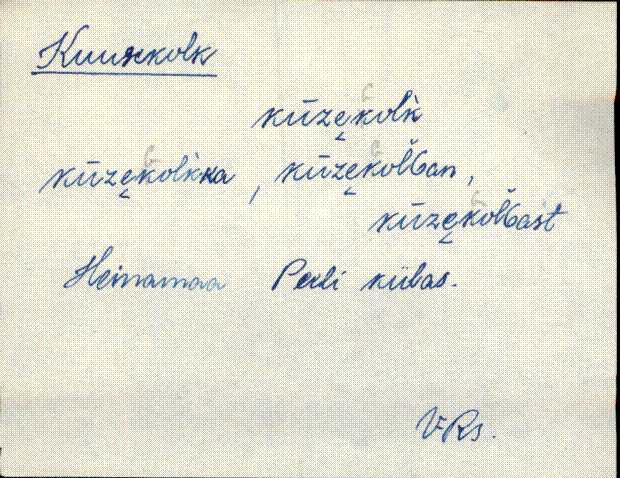 Kuusekolk
kūzękolk
kūzękolkka, kūzękolGan,
kūzękolGast
Heinamaa Peedi külas.
VRs.